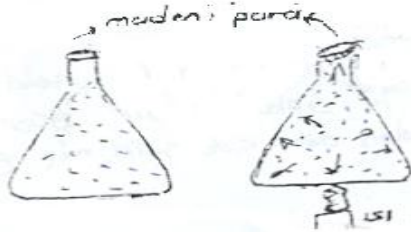 madeni para
ısı